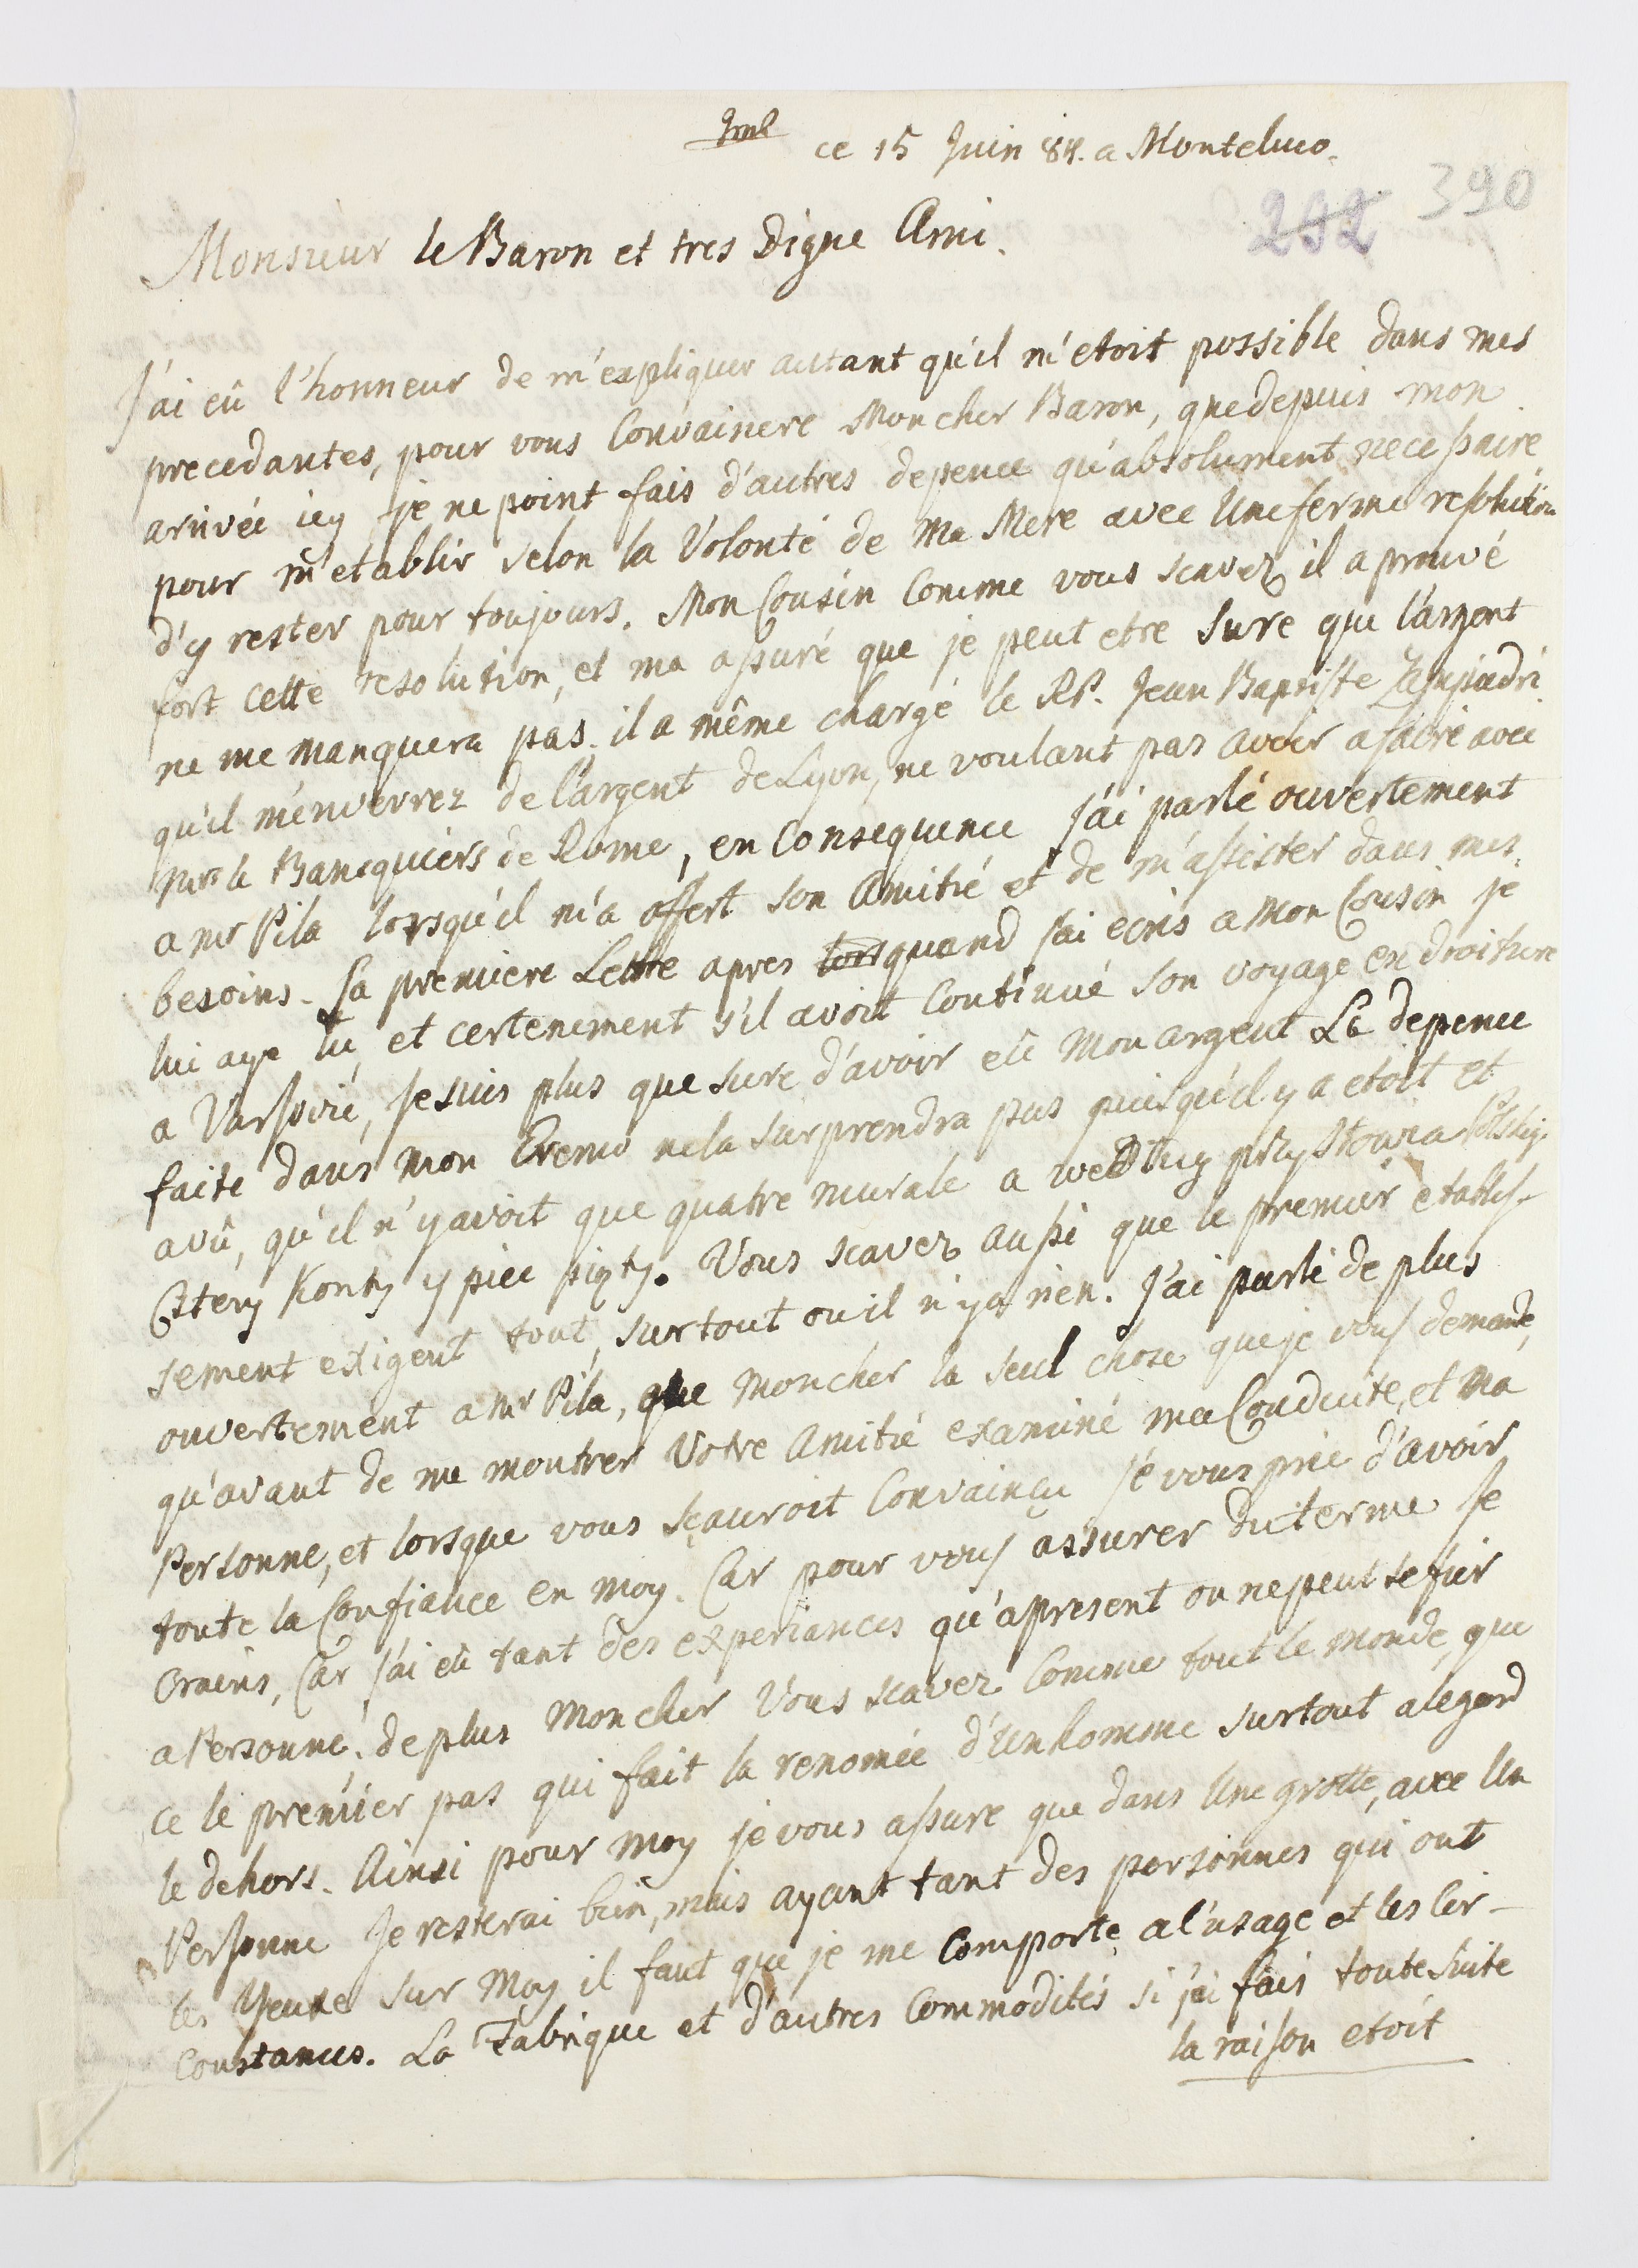 ce 15 Juin 84. a Monteluco.
292 390
Monsieur le Baron et tres Digne Ami.
J'ai eû l'honneur de m'expliquer autant qu'il m'etoit possible dans mes
precedantes, pour vous Convaincre Mon cher Baron, que depuis mon
arrivée icy je ne point fais d'autres depence qu'absolument necessaire
pour m'etablir selon la Volonté de Ma Mere avec Une ferme resolution
d'y rester pour toujours. Mon Cousin Comme vous scavez il a prouvé
fort cette resolution, et ma assuré que je peut etre Sure que l'argent
ne me manquera pas. il a même chargé le RP. Jean Baptiste
qu'il m'enverrez de l'argent de Lyon, ne voulant pas avoir afaire avec
Mrs le Bancquiers de Rome, en Consequence J'ai parlé ouvertement
a Mr Pila lorsqu'il m'a offert son Amitié et de m'assister dans mes
besoins. Sa premiere Lettre apres lors quand J'ai ecris a Mon Cousin je
lui aye lu, et certenement s'il avoit Continué son voyage en droiture
a Varsovie, Je suis plus que sure d'avoir eû Mon argent La depence
faite dans mon Eremo ne la surprendra pas puisqu'il y a etoit et
a vû, qu'il n'y avoit que quatre murale a wedlug przyslowia Polskig.
Cztery Konty y piec piąty. Vous scavez aussi que le premier etablis-
sement exigent tout, surtout ou il n'ya rien. J'ai parlé de plus
ouvertement a Mr Pila, que Mon cher la seul chose que je vous demande,
qu'avant de me montrer Votre Amitié examiné ma Conduite, et Ma
Personne, et lorsque vous sçauroit Convainçu je vous prie d'avoir
toute la Confiance en moy. Car pour vous assurer du terme Je
Crains, Car J'ai eû tant des experiances qu'apresent on ne peut se fier
a Personne, de plus Mon cher Vous scavez Comme tout le Monde, que
ce le premier pas qui fait la renomée d'Un homme surtout a legard
le dehors. Ainsi pour Moy je vous assure que dans Une grotte, avec Un
Personne Je resterai bien, mais ayant tant des personnes qui ont
les Yeuxe sur Moy il faut que je me Comporte a l'usage et les Cir-
Constances. La Fabrique et d'autres Commodités si j'ai fais toute suite
la raison etoit